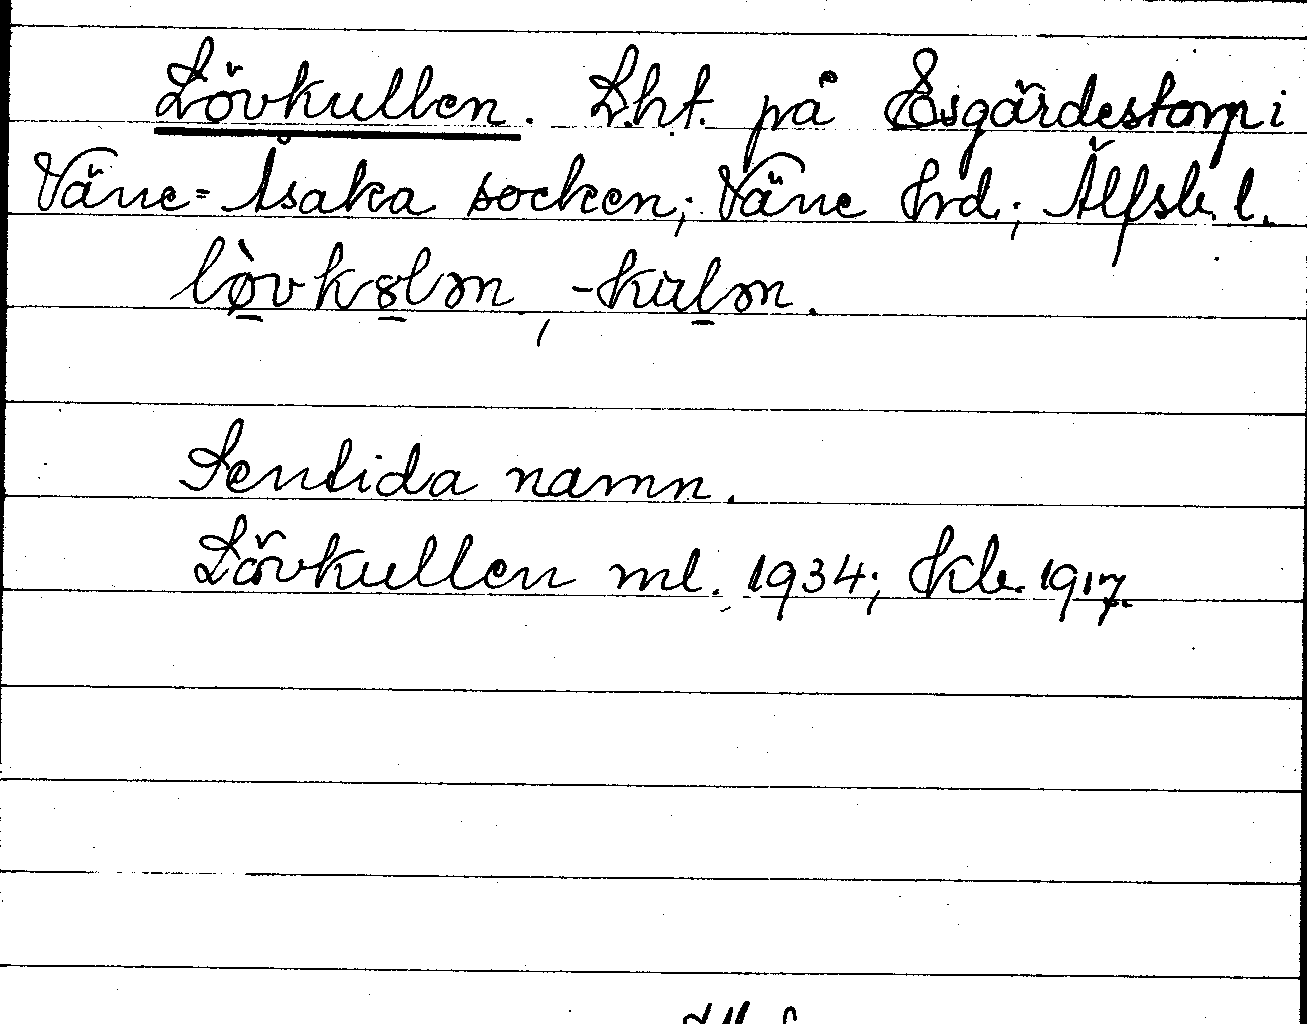 Lövkullen. Lht. på Esgärdestorp i
Väne-Åsaka socken; Väne hrd; Älfsb. l.
lø̀vkɞlən, -kulən.
Sentida namn.
Lövkullen ml. 1934; Kb. 1917.